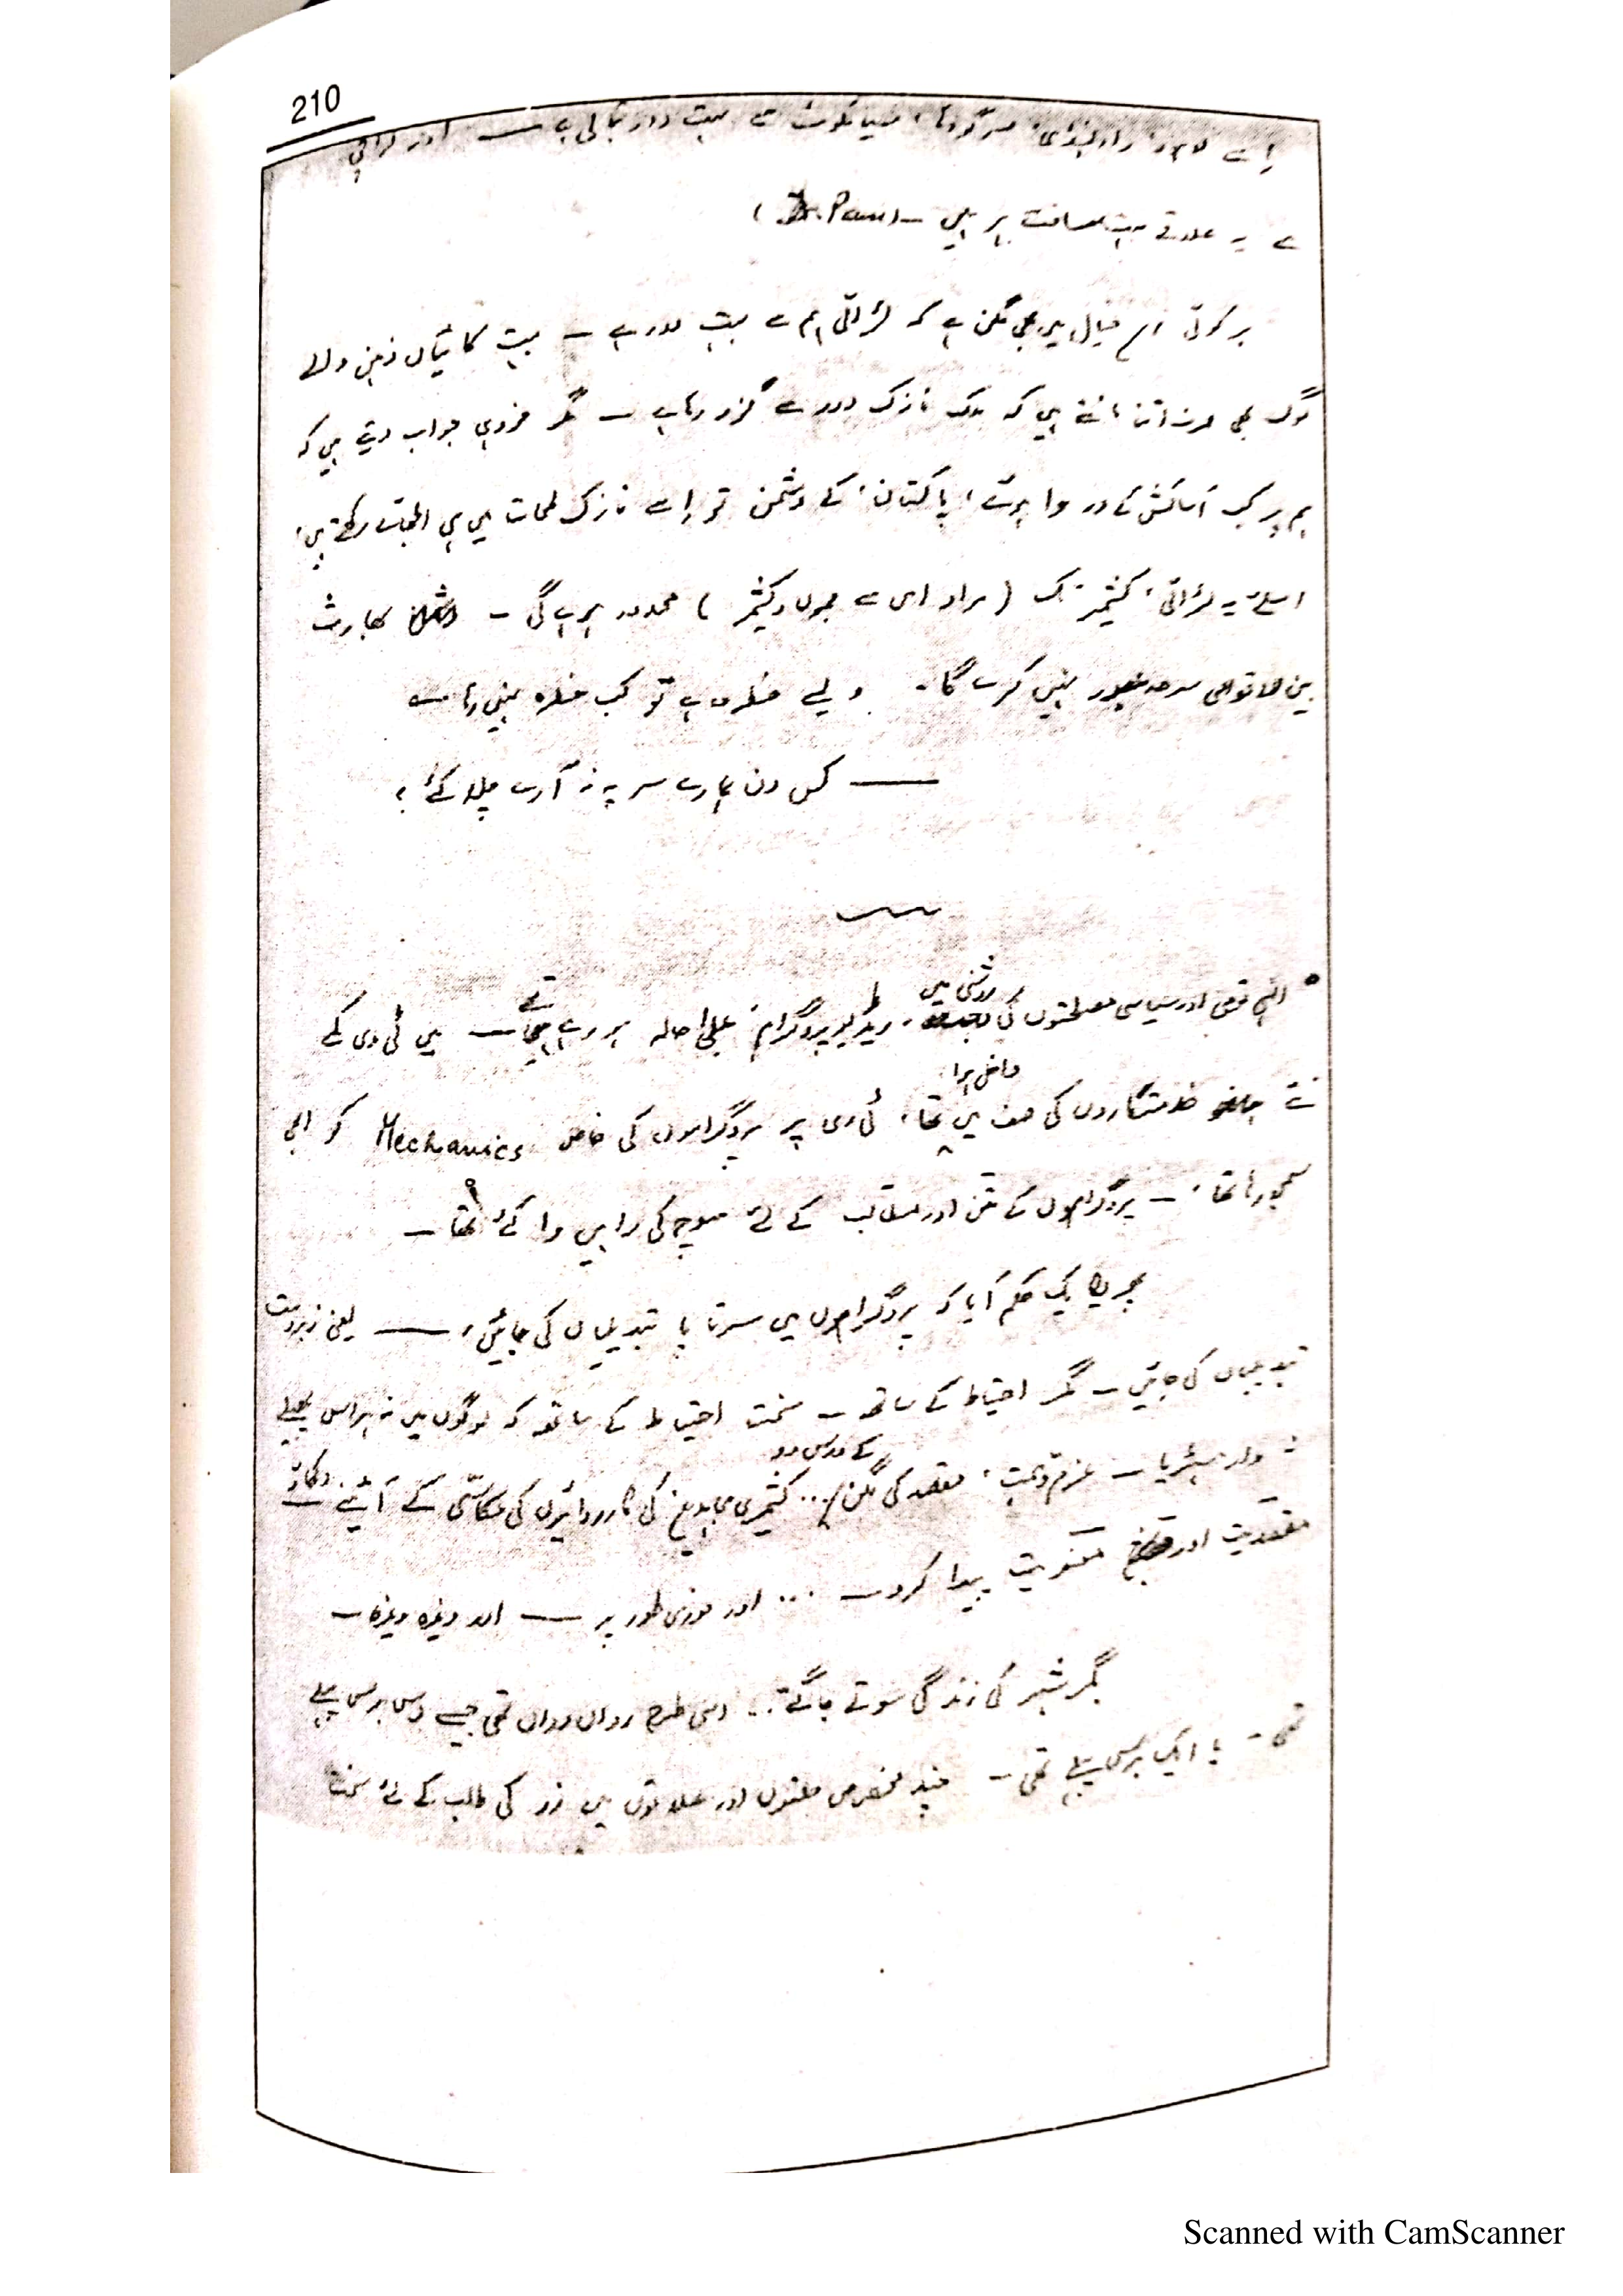 210
اسے لاہور، راولپنڈی، سرگودھا، سیالکوٹ سے بہت دور بتاتی ہے — اور کراچی
سے یہ علاقے بہت مسافت پر ہیں — (Dr. Pann)
ہر کوئی اس خیال میں ہی مگن ہے کہ لڑائی ہم سے بہت دور ہے — بہت کائیاں ذہن والے
لوگ بھی صرف اتنا مانتے ہیں کہ ملک نازک دور سے گزر رہا ہے — مگر خود ہی جواب دیتے ہیں کہ
ہم پر کب آسائش کے در وا ہوئے، پاکستان، کے دشمن تو اسے نازک لمحات میں ہی رکھتے ہیں،
اسلئے یہ لڑائی، کشمیر تک (مراد اس سے جموں و کشمیر) محدود رہے گی — بھارت
بین الاقوامی سرحد عبور نہیں کرے گا۔ ویسے خطرہ ہے تو کب خطرہ نہیں رہا —
— کس دن ہمارے سر پہ نہ آرے چلا کئے ؟
روشنی میں
° اپنی قومی اور سیاسی مصلحتوں کی ، ریڈیو پروگرام، علیٰ حالہ ہو رہے تھے — میں ٹی وی کے
حاضر ہوا
نئے خدمتگاروں کی صف میں تھا، ٹی وی پر پروگراموں کی خاص Mechanics کو ابھی
سمجھ رہا تھا، — پروگراموں کے متن اور مطالب کے لئے سوچ کی راہیں وا کئے تھا —
پھر یکایک حکم آیا کہ پروگراموں میں سرتا پا تبدیلیاں کی جائیں، — یعنی زبردست
تبدیلیاں کی جائیں — مگر احتیاط کے ساتھ — سخت احتیاط کے ساتھ کہ لوگوں میں نہ ہراس پھیلے
کے درس دو
نہ ہسٹیریا — عزم و ہمت، مقصد کی لگن ... کشمیری مجاہدین کی کارروائیوں کی عکاسی کے آئینے دکھاؤ
مقصدیت اور معنویت پیدا کرو — ... اور فوری طور پر — اور وغیرہ وغیرہ —
مگر شہر کی زندگی سوتے جاگتے .. اسی طرح رواں دواں تھی جیسے دس برس پہلے
تھی — یا ایک برس پہلے تھی — چند مخصوص حلقوں اور علاقوں میں زر کی طلب کے لئے سخت
Scanned with CamScanner